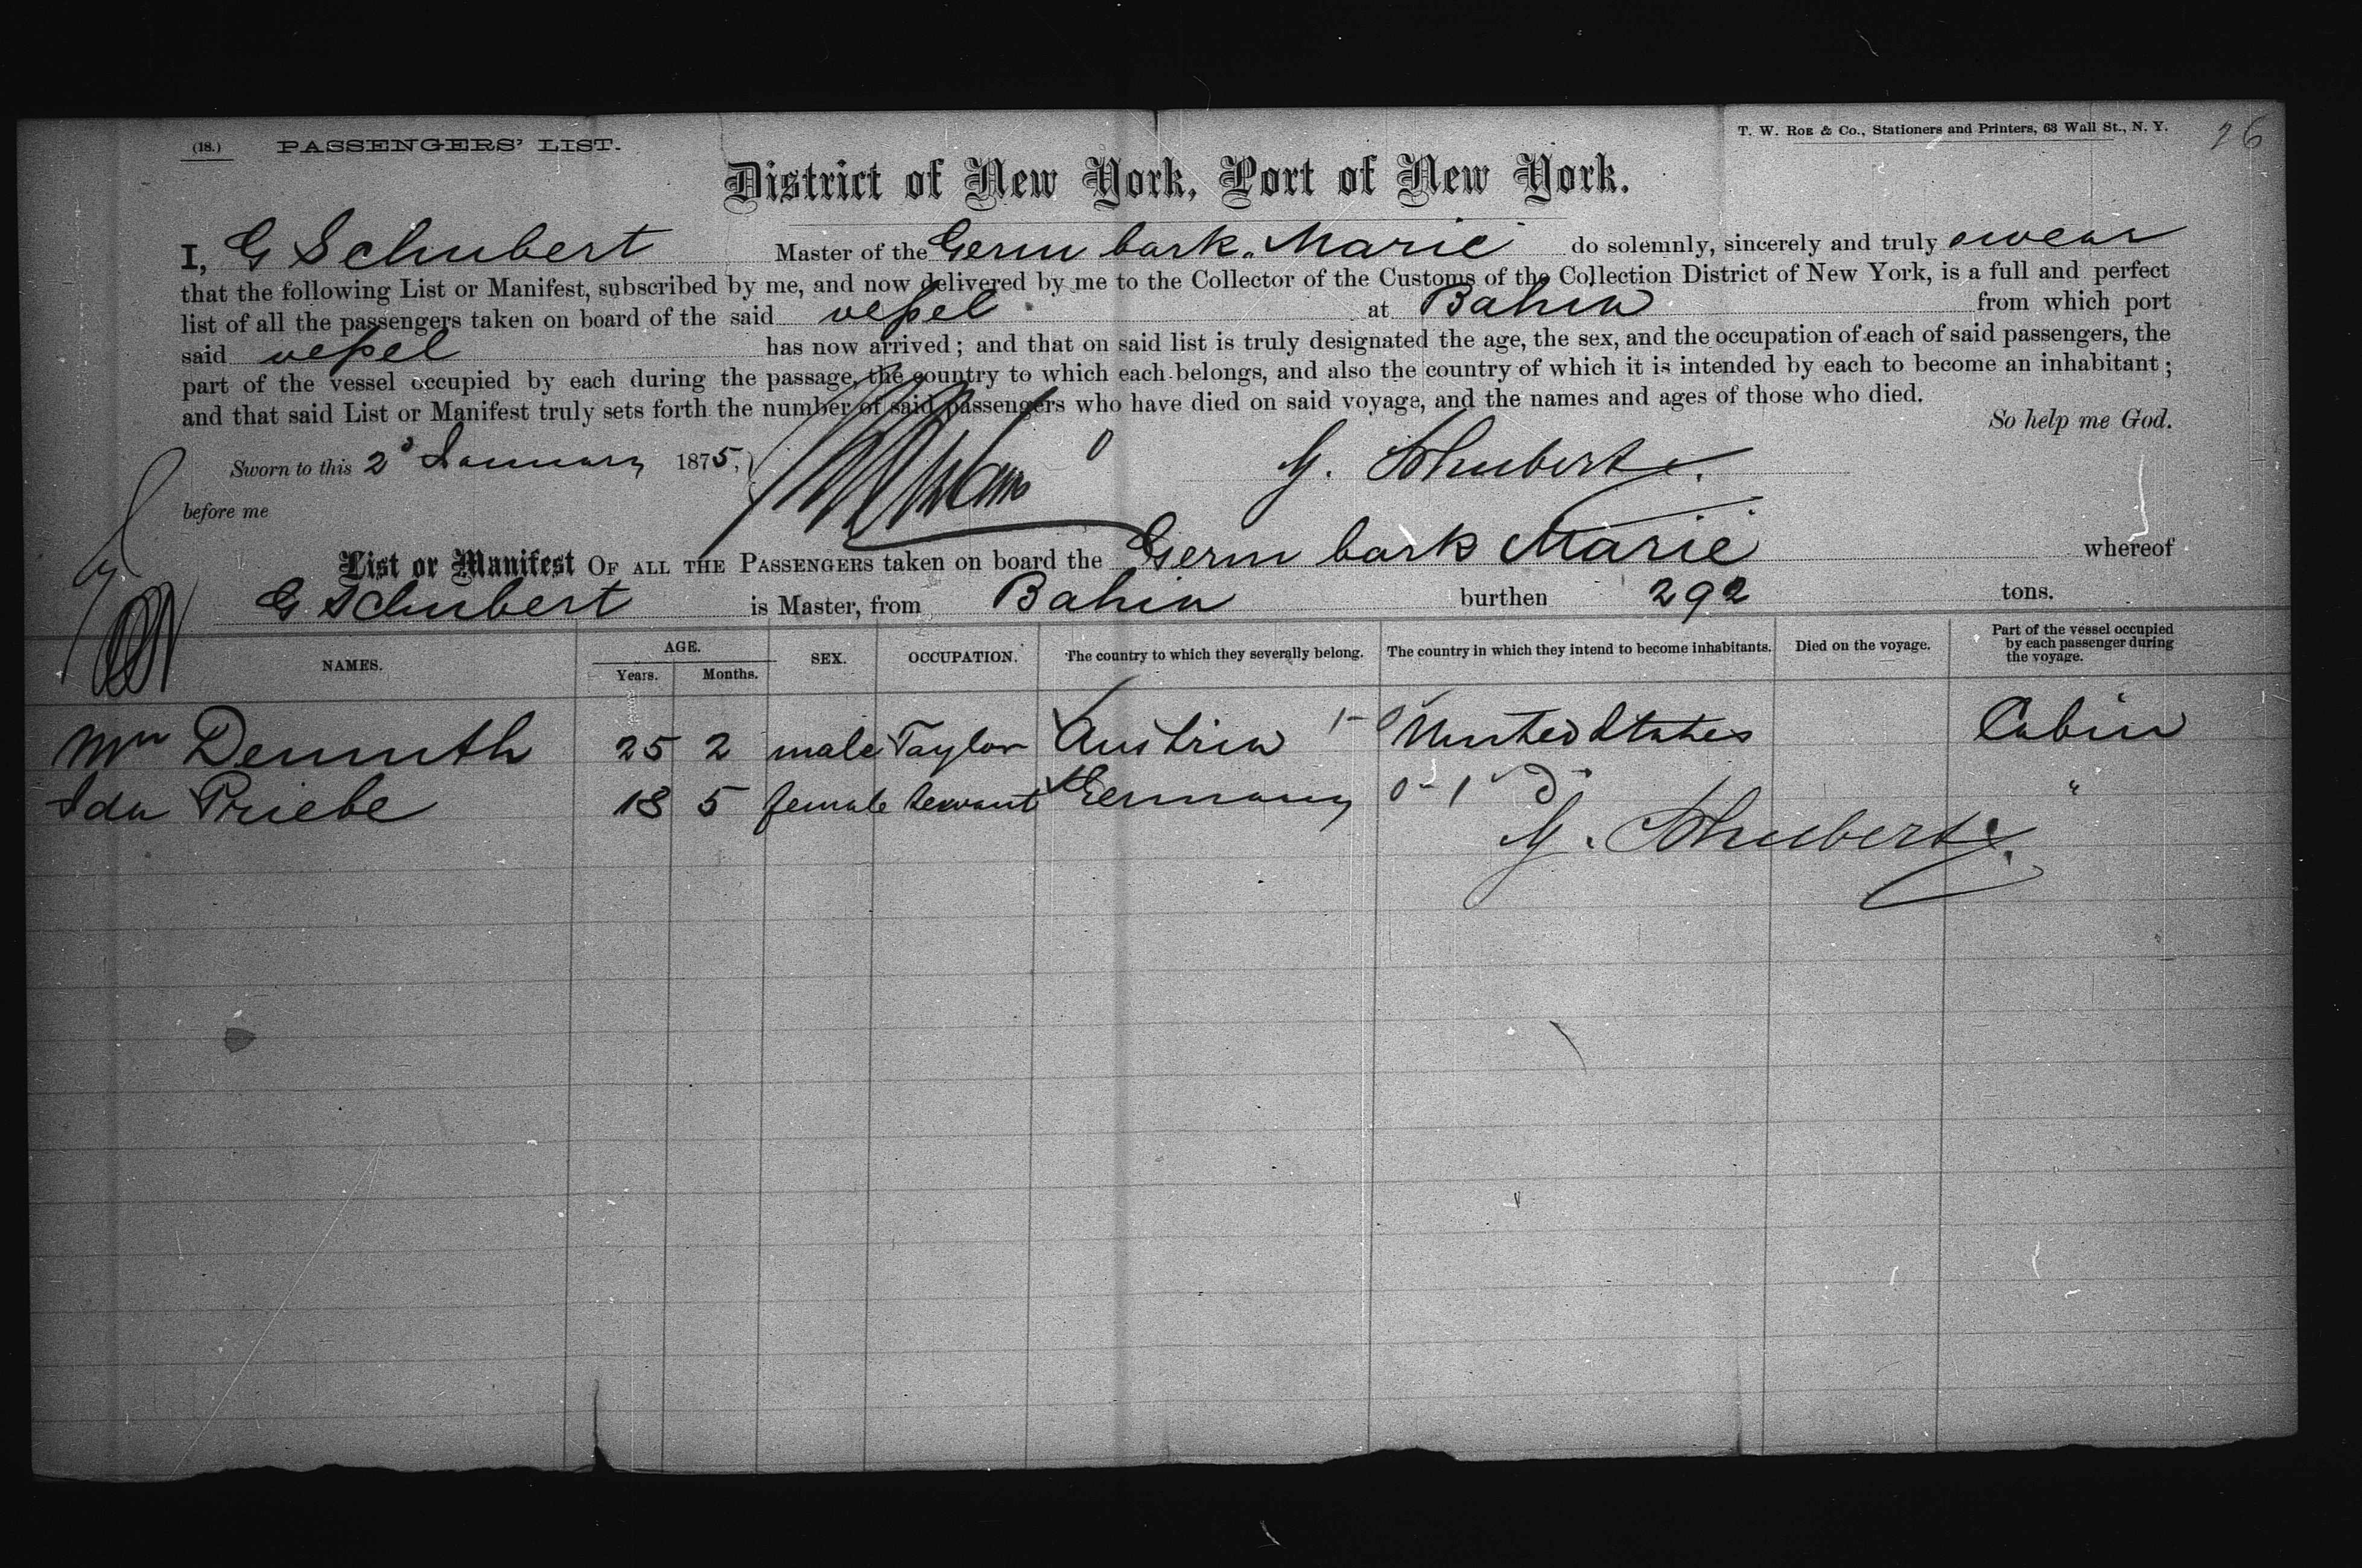 (18.) PASSENGERS' LIST. T. W. ROE & Co., Stationers and Printers, 63 Wall St., N. Y. 26
District of New York, Port of New York.
I, G Schubert Master of the Germ bark. Marie do solemnly, sincerely and truly swear
that the following List or Manifest, subscribed by me, and now delivered by me to the Collector of the Customs of the Collection District of New York, is a full and perfect
list of all the passengers taken on board of the said vessel at Bahia from which port
said vessel has now arrived; and that on said list is truly designated the age, the sex, and the occupation of each of said passengers, the
part of the vessel occupied by each during the passage, the country to which each belongs, and also the country of which it is intended by each to become an inhabitant;
and that said List or Manifest truly sets forth the number of said passengers who have died on said voyage, and the names and ages of those who died.
So help me God.
Sworn to this 2d January 1875, G. Schubert.
before me
List or Manifest OF ALL THE PASSENGERS taken on board the Germ bark Marie whereof
G. Schubert is Master, from Bahia burthen 292 tons.
NAMES. AGE. Years. Months. SEX. OCCUPATION. The country to which they severally belong. The country in which they intend to become inhabitants. Died on the voyage. Part of the vessel occupied by each passenger during the voyage.
Wm Demuth 25 2 male Taylor Austria 1-0 United States Cabin
Ida Priebe 18 5 female Servant Germany 0-1 Do "
G. Schubert.